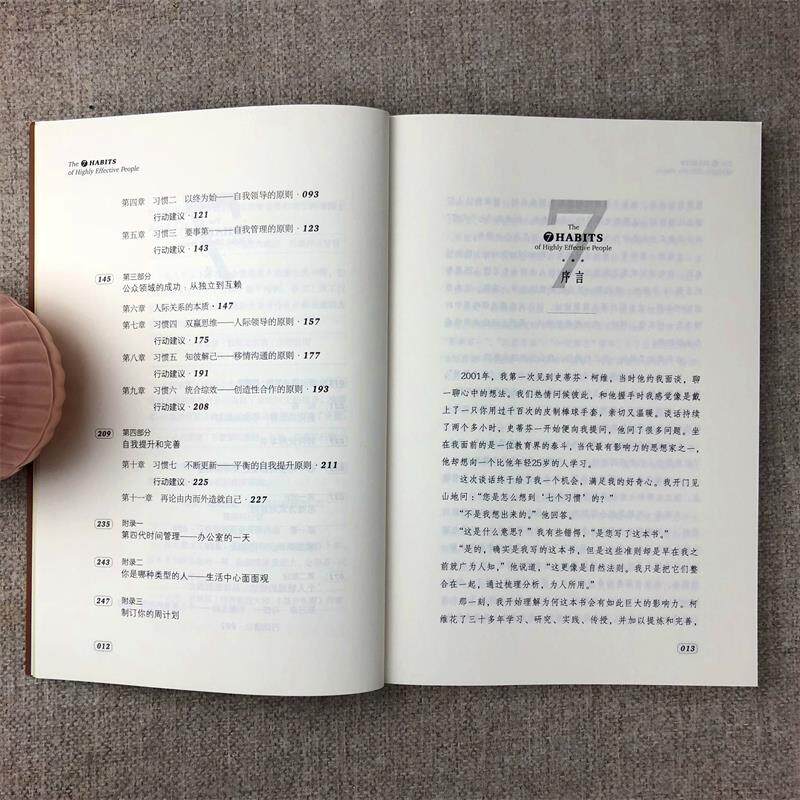 The 7 HABITS
of Highly Effective People
第四章 习惯二 以终为始——自我领导的原则·093
行动建议·121
第五章 习惯三 要事第一——自我管理的原则·123
行动建议·143
145 第三部分
公众领域的成功：从独立到互赖
第六章 人际关系的本质·147
第七章 习惯四 双赢思维——人际领导的原则·157
行动建议·175
第八章 习惯五 知彼解己——移情沟通的原则·177
行动建议·191
第九章 习惯六 统合综效——创造性合作的原则·193
行动建议·208
209 第四部分
自我提升和完善
第十章 习惯七 不断更新——平衡的自我提升原则·211
行动建议·225
第十一章 再论由内而外造就自己·227
235 附录一
第四代时间管理——办公室的一天
243 附录二
你是哪种类型的人——生活中心面面观
247 附录三
制订你的周计划
012
7
The
7 HABITS
of Highly Effective People
序言
2001年，我第一次见到史蒂芬·柯维，当时他约我面谈，聊
一聊心中的想法。我们热情问候彼此，和他握手时我感觉像是戴
上了一只你用过千百次的皮制棒球手套，亲切又温暖。谈话持续
了两个多小时，史蒂芬一开始便向我提问，他问了很多问题。坐
在我面前的是一位教育界的泰斗，当代最有影响力的思想家之一，
他却想向一个比他年轻25岁的人学习。
这次谈话终于给了我一个机会，满足我的好奇心。我开门见
山地问：“您是怎么想到‘七个习惯’的？”
“不是我想出来的。”他回答。
“这是什么意思？”我有些错愕，“是您写了这本书。”
“是的，确实是我写的这本书，但是这些准则却是早在我之
前就广为人知，”他说道，“这更像是自然法则。我只是把它们整
合在一起，通过梳理分析，为人所用。”
那一刻，我开始理解为何这本书会有如此巨大的影响力。柯
维花了三十多年学习、研究、实践、传授，并加以提炼和完善，
013